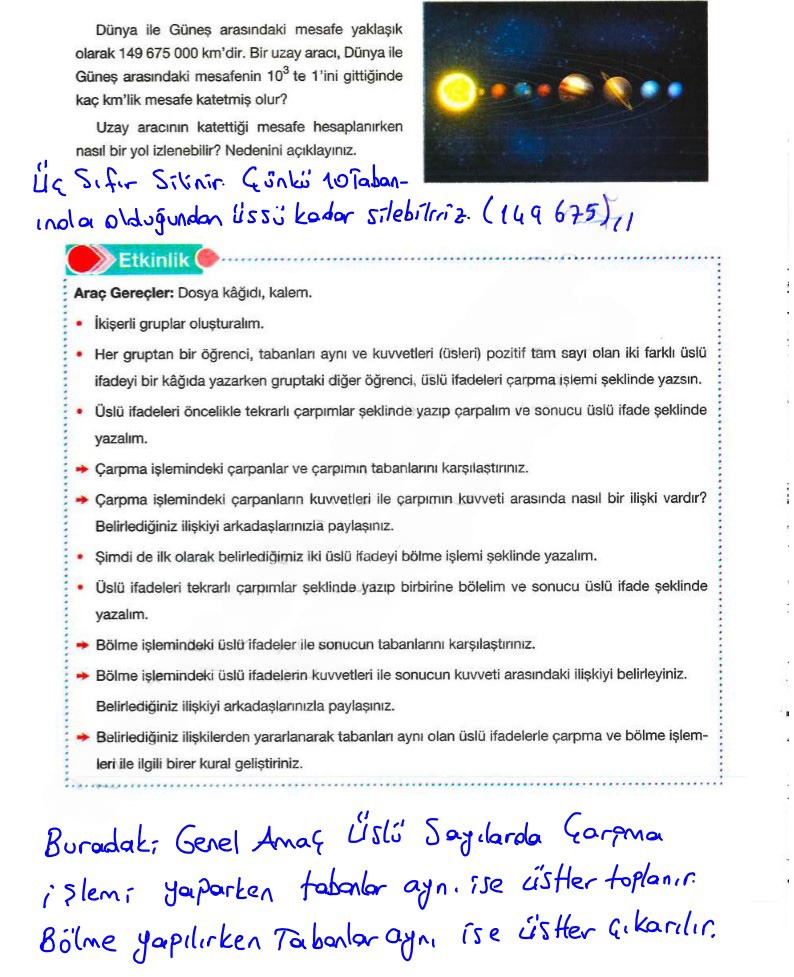 Dünya ile Güneş arasındaki mesafe yaklaşık
olarak 149 675 000 km'dir. Bir uzay aracı, Dünya ile
Güneş arasındaki mesafenin 10³ te 1'ini gittiğinde
kaç km'lik mesafe katetmiş olur?
Uzay aracının katettiği mesafe hesaplanırken
nasıl bir yol izlenebilir? Nedenini açıklayınız.
Üç Sıfır Silinir. Çünkü 10 Taban-
ında olduğundan üssü kadar silebiliriz. (149 675)
Etkinlik
Araç Gereçler: Dosya kâğıdı, kalem.
• İkişerli gruplar oluşturalım.
• Her gruptan bir öğrenci, tabanları aynı ve kuvvetleri (üsleri) pozitif tam sayı olan iki farklı üslü
ifadeyi bir kâğıda yazarken gruptaki diğer öğrenci, üslü ifadeleri çarpma işlemi şeklinde yazsın.
• Üslü ifadeleri öncelikle tekrarlı çarpımlar şeklinde yazıp çarpalım ve sonucu üslü ifade şeklinde
yazalım.
➜ Çarpma işlemindeki çarpanlar ve çarpımın tabanlarını karşılaştırınız.
➜ Çarpma işlemindeki çarpanların kuvvetleri ile çarpımın kuvveti arasında nasıl bir ilişki vardır?
Belirlediğiniz ilişkiyi arkadaşlarınızla paylaşınız.
• Şimdi de ilk olarak belirlediğimiz iki üslü ifadeyi bölme işlemi şeklinde yazalım.
• Üslü ifadeleri tekrarlı çarpımlar şeklinde yazıp birbirine bölelim ve sonucu üslü ifade şeklinde
yazalım.
➜ Bölme işlemindeki üslü ifadeler ile sonucun tabanlarını karşılaştırınız.
➜ Bölme işlemindeki üslü ifadelerin kuvvetleri ile sonucun kuvveti arasındaki ilişkiyi belirleyiniz.
Belirlediğiniz ilişkiyi arkadaşlarınızla paylaşınız.
➜ Belirlediğiniz ilişkilerden yararlanarak tabanları aynı olan üslü ifadelerle çarpma ve bölme işlem-
leri ile ilgili birer kural geliştiriniz.
Buradaki Genel Amaç Üslü Sayılarda Çarpma
işlemi yaparken tabanlar aynı ise üstler toplanır.
Bölme yapılırken Tabanlar aynı ise üstler çıkarılır.